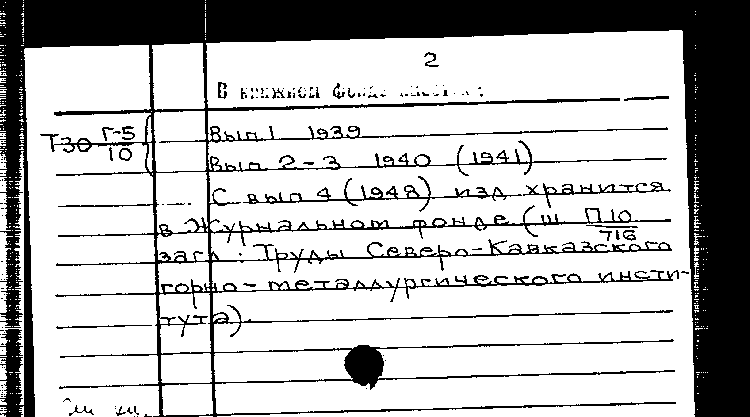 2
В книжном фонде имеется:
Т30 Г-5/10 Вып 1 1939
Вып 2-3 1940 (1941)
С вып 4 (1948) изд хранится
в Журнальном фонде (ш П10/716
загл: Труды Северо-Кавказского
горно-металлургического инсти-
тута).